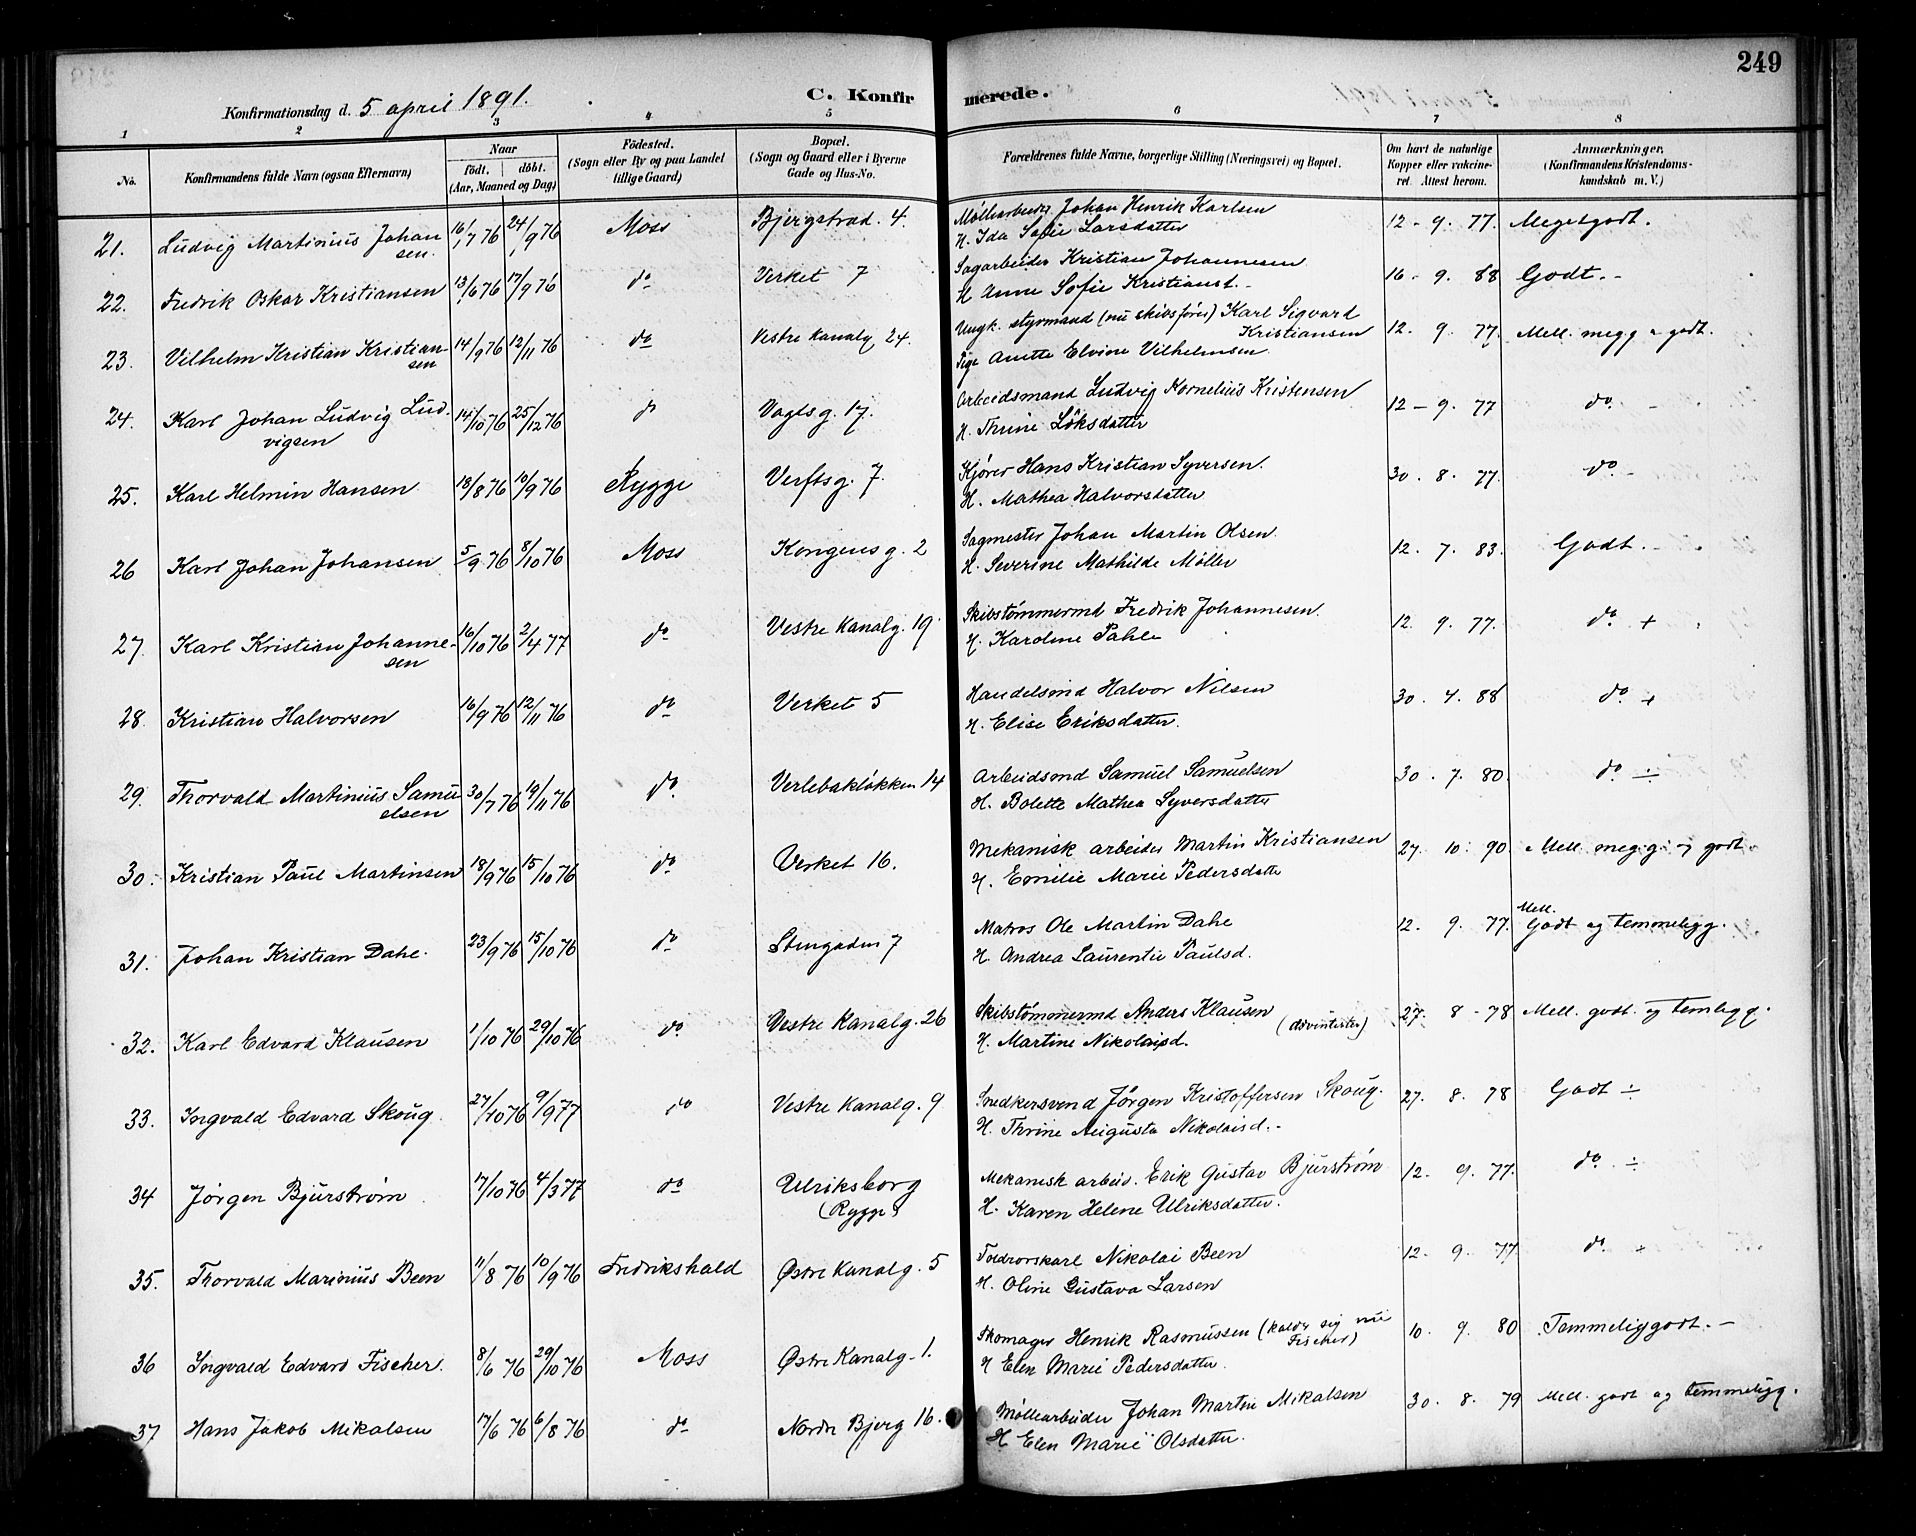 249
Konfirmationsdag d. 5 april 1891.
C. Konfirmerede.
1 2 3 4 5 6 7 8
No.
Konfirmandens fulde Navn (ogsaa Efternavn)
Naar
födt. döbt.
(Aar, Maaned og Dag)
Födested.
(Sogn eller By og paa Landet
tillige Gaard)
Bopæl.
(Sogn og Gaard eller i Byerne
Gade og Hus-No.
Forældrenes fulde Navne, borgerlige Stilling (Næringsvei) og Bopæl.
Om havt de naturlige
Kopper eller vakcine-
ret. Attest herom.
Anmærkninger,
(Konfirmandens Kristendoms-
kundskab m. V.)
21. Ludvig Martinius Johan 16/7 76 24/9 76 Moss Bjergstrad. 4. Møllearbeider Johan Henrik Karlsen 12 - 9. 77. Megetgodt.
sen. H. Ida Sofie Larsdatter
22. Fredrik Oskar Kristiansen 13/6 76 17/9 76 do Verket 7 Sagarbeider Kristian Johannesen 16 - 9. 88 Godt. -
H Anne Sofie Kristianst. -
23. Vilhelm Kristian Kristian- 14/9 76 12/11 76 do Vestre Kanalg. 24. Ungk. styrmand (nu skibsfører) Karl Sigvard 12. 9. 77. Mell. megg & godt.
sen Kristiansen
Pige Anette Elvine Vilhelmsen
24. Karl Johan Ludvig Lud- 14/10 76 25/12 76 do Vogtsg. 17. Arbeidsmand Ludvig Kornelius Kristensen 12 - 9. 77 do. -
vigsen H. Thrine Löksdatter
25. Karl Helmin Hansen 18/8 76 10/9 76 Rygge Verftsg. 7. Kjører Hans Kristian Syversen. 30. 8. 77. do -
H. Mathea Halvorsdatter
26 Karl Johan Johansen 5/9 76 8/10 76 Moss Kongensg. 2 Sagmester Johan Martin Olsen. 12. 7. 83. Godt. -
H. Severine Mathilde Møller
27. Karl Kristian Johanne- 16/10 76 2/4 77 do Vestre Kanalg. 19 Skibstømmermd Fredrik Johannesen. 12. 9. 77. do +
sen H. Karoline Pahle
28. Kristian Halvorsen 16/9 76 12/11 76 do Verket 5 Handelsmd Halvor Nilsen 30. 4. 88 do. +
H. Elise Eriksdatter.
29. Thorvald Martinius Samu 30/7 76 19/11 76 do. Verlebakløkken 14 Arbeidsmd Samuel Samuelsen 30. 7. 80. do ÷
elsen H. Bolette Mathea Syversdatter
30. Kristian Paul Martinsen 18/9 76 15/10 76 do Verket 16. Mekanisk arbeider Martin Kristiansen 27. 10. 90. Mell. megg. og godt.
H. Emilie Marie Pedersdatter
31. Johan Kristian Dahe. 23/9 76 15/10 76 do Stengaden 7 Matros Ole Martin Dahe 12. 9. 77. Mell. Godt og temmeligg.
H. Andrea Laurentie Paulsd.
32. Karl Edvard Klausen 1/10 76 29/10 76 do Vestre Kanalg. 26 Skibstømmermd Anders Klausen 27. 8 - 78 Mell. godt. og temligg.
H. Martine Nikolaisd.
33. Ingvald Edvard Skoug. 27/10 76 9/9 77 do Vestre Kanalg. 9 Snedkersvend Jørgen Kristoffersen Skoug. 27. 8. 78 Godt ÷
H. Thrine Augusta Nikolaisd. -
34 Jørgen Bjurstrøm 17/10 76 4/3 77 do Ulriksborg Mekanisk arbeid. Erik Gustav Bjurstrøm 12. 9. 77. do. ÷
(Rygge) H. Karen Helene Ulriksdatter.
35. Thorvald Marinius Been 11/8 76 10/9 76 Fredrikshald Østre Kanalg. 5 Toldrorskarl Nikolai Been 12. 9. 77 do. +
H. Oline Gustava Larsen
36 Ingvald Edvard Fischer. 8/6 76 29/10 76 Moss Østre Kanalg. 1. Skomager Henrik Rasmussen (kalder sig nu 10. 9. 80 Temmeliggodt. -
Fischer)
H Elen Marie Pedersdatter.
37 Hans Jakob Mikalsen 17/6 76 6/8 76 do Nordre Bjerg 16. Møllearbeider Johan Martin Mikalsen 30. 8. 79 Mell. godt og temmeligg.
H Elen Marie Olsdatter.